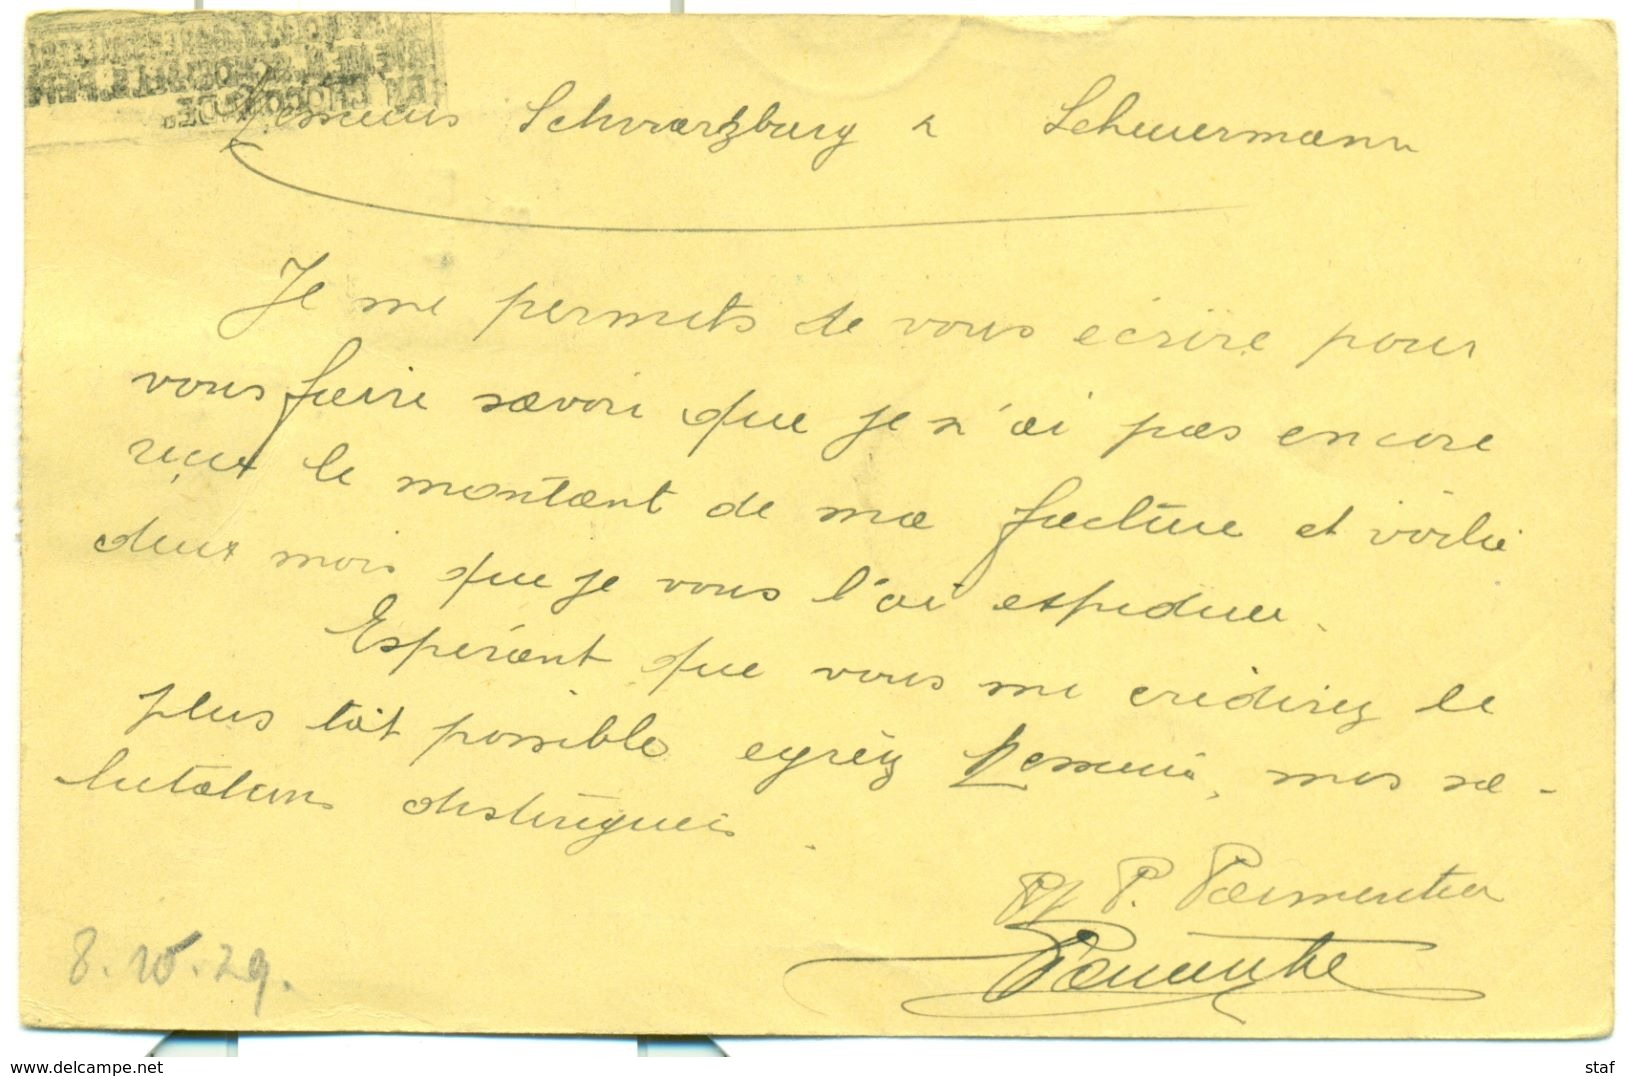 Messieurs Schwarzburg & Scheuermann
Je me permets de vous écrire pour
vous faire savoir que je n'ai pas encore
reçut le montant de ma facture et voilà
deux mois que je vous l'ai expediée.
Espérant que vous me crèdirez le
plus tôt possible egréez Messieurs, mes sa-
lutations distinguées.
P. Parmentier
Parmentier
8.10.29.
www.delcampe.net
staf